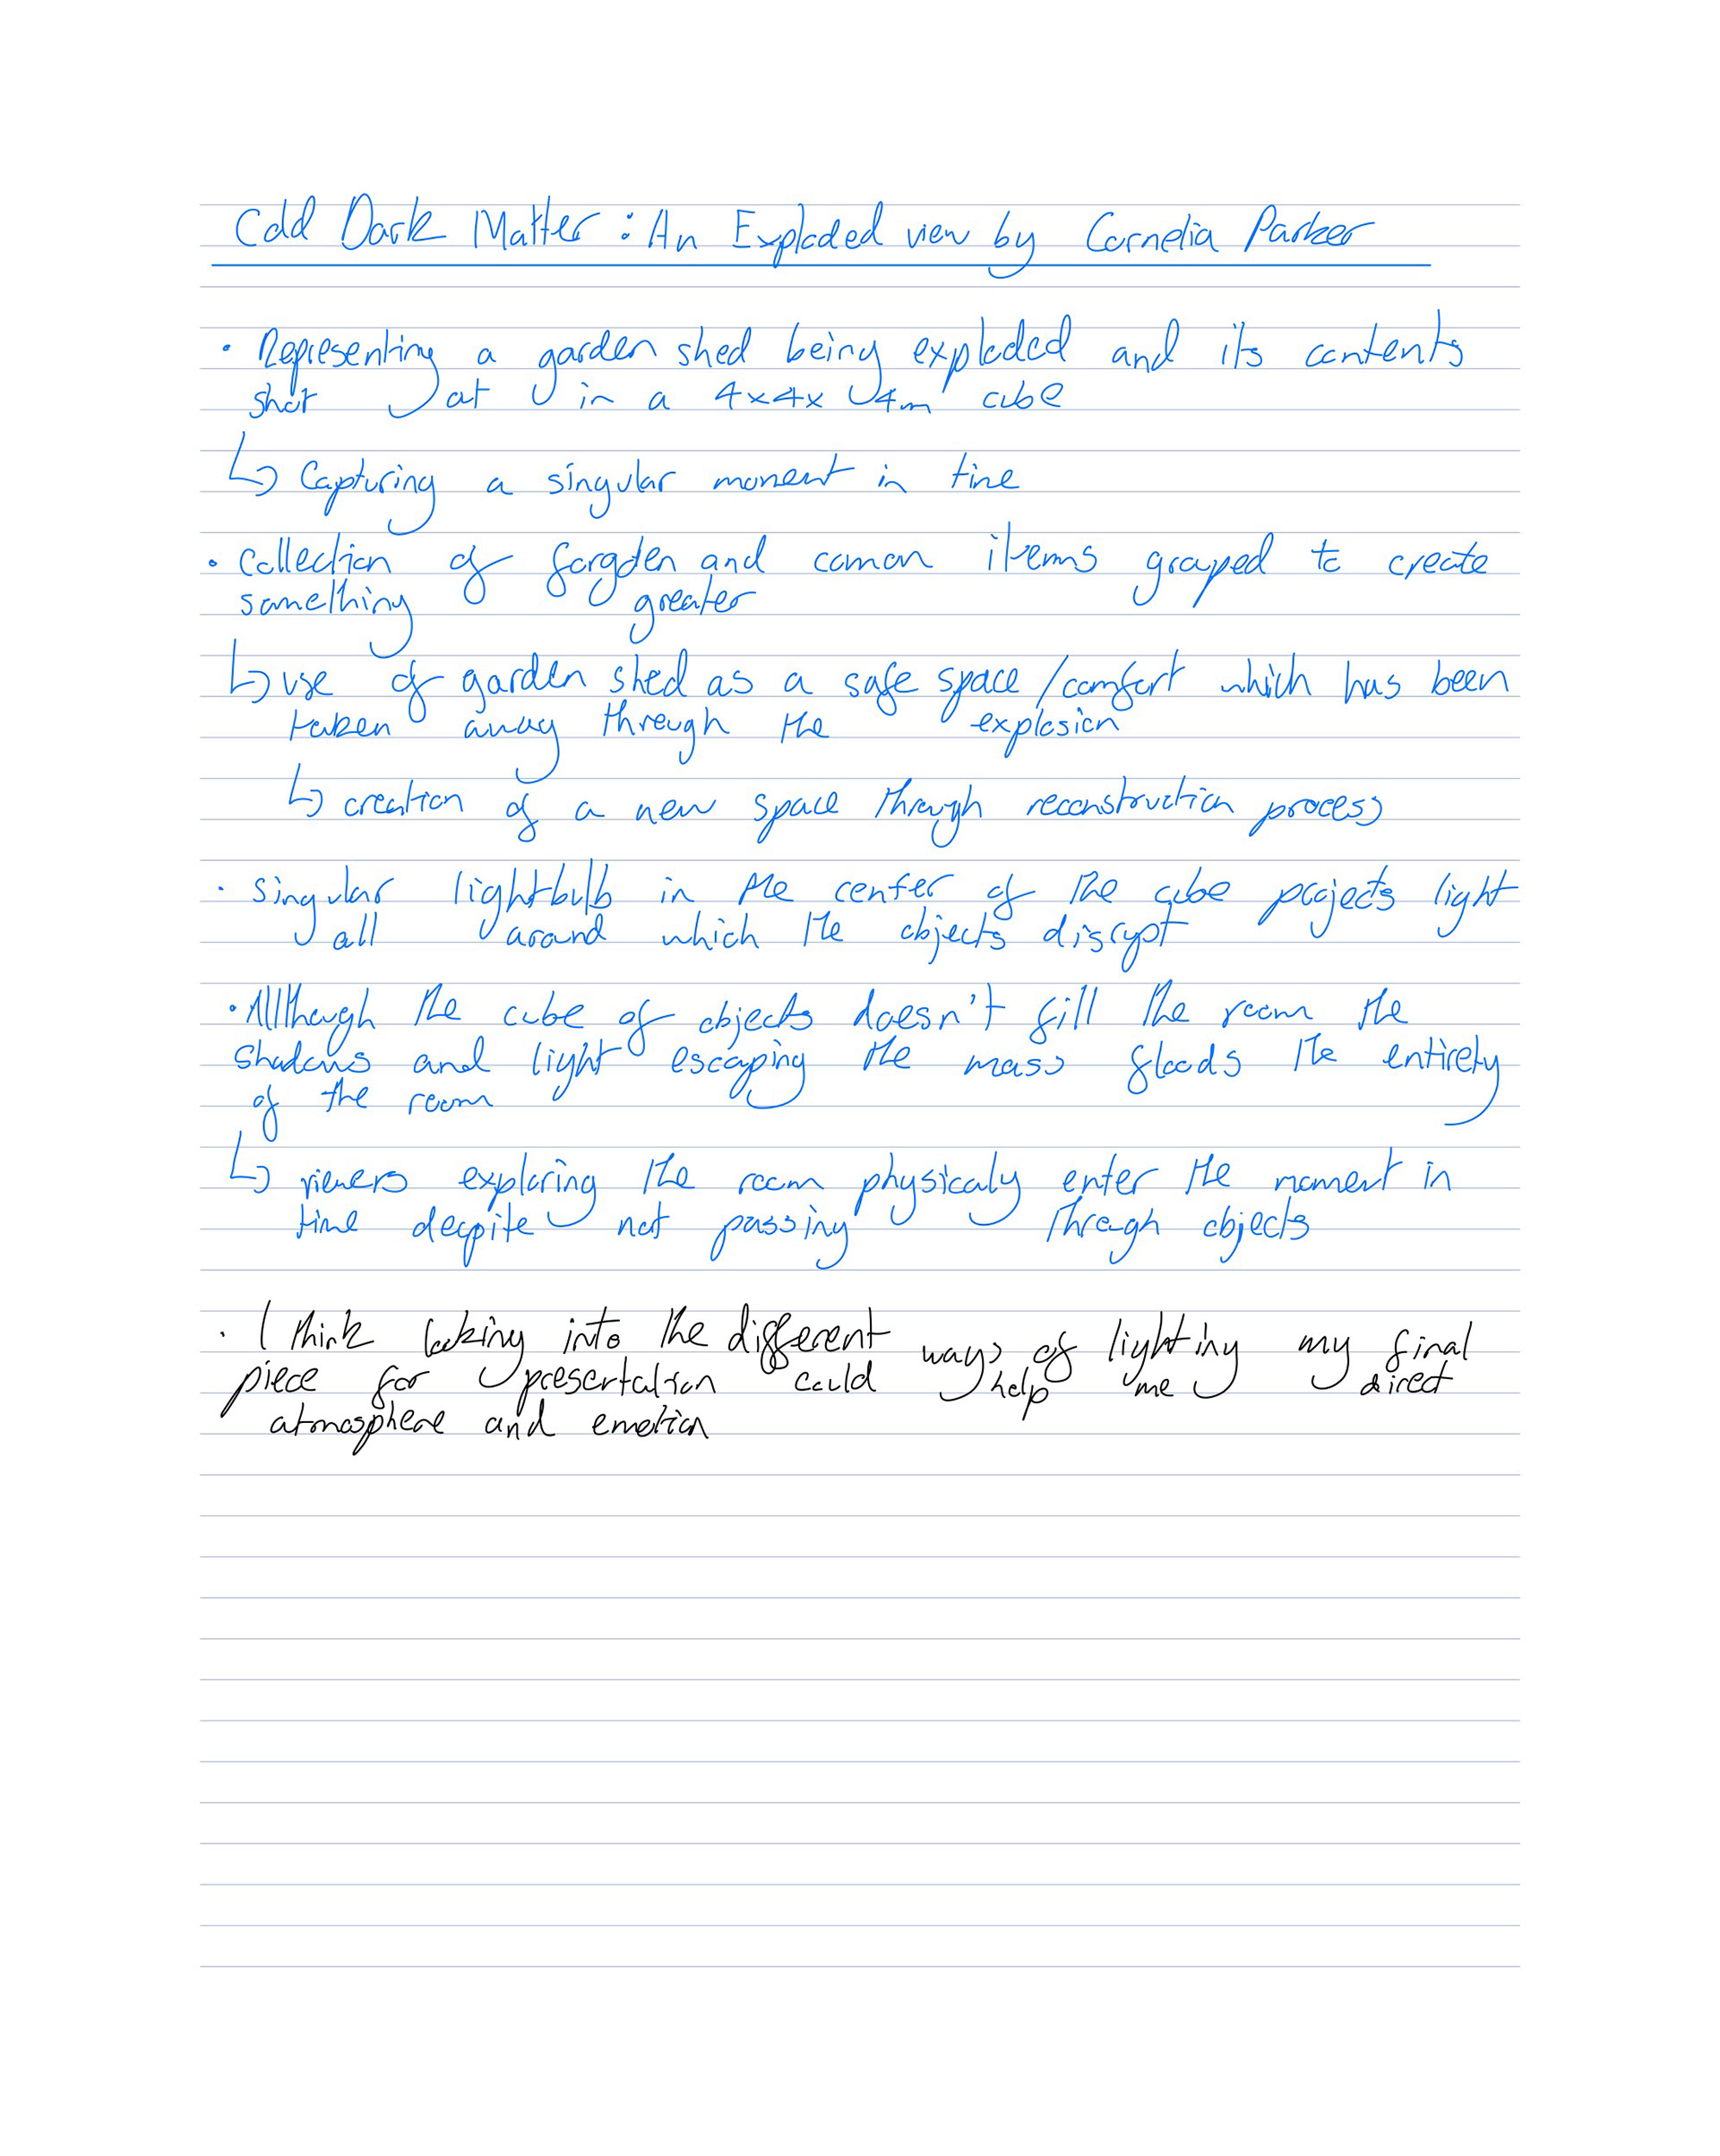 Cold Dark Matter : An Exploded view by Cornelia Parker
· Representing a garden shed being exploded and its contents
shot at in a 4x4x4m cube
↳ Capturing a singular moment in time
· Collection of forgoten and comon items grouped to create
something greater
↳ use of garden shed as a safe space/comfort which has been
taken away through the explosion
↳ creation of a new space through reconstruction process
· singular lightbulb in the center of the cube projects light
all around which the objects disrupt
· Allthough the cube of objects doesn't fill the room the
shadows and light escaping the mass floods the entirety
of the room
↳ viewers exploring the room physicaly enter the moment in
time despite not passing through objects
· I think looking into the different ways of lighting my final
piece for presentation could help me direct
atmosphere and emotion